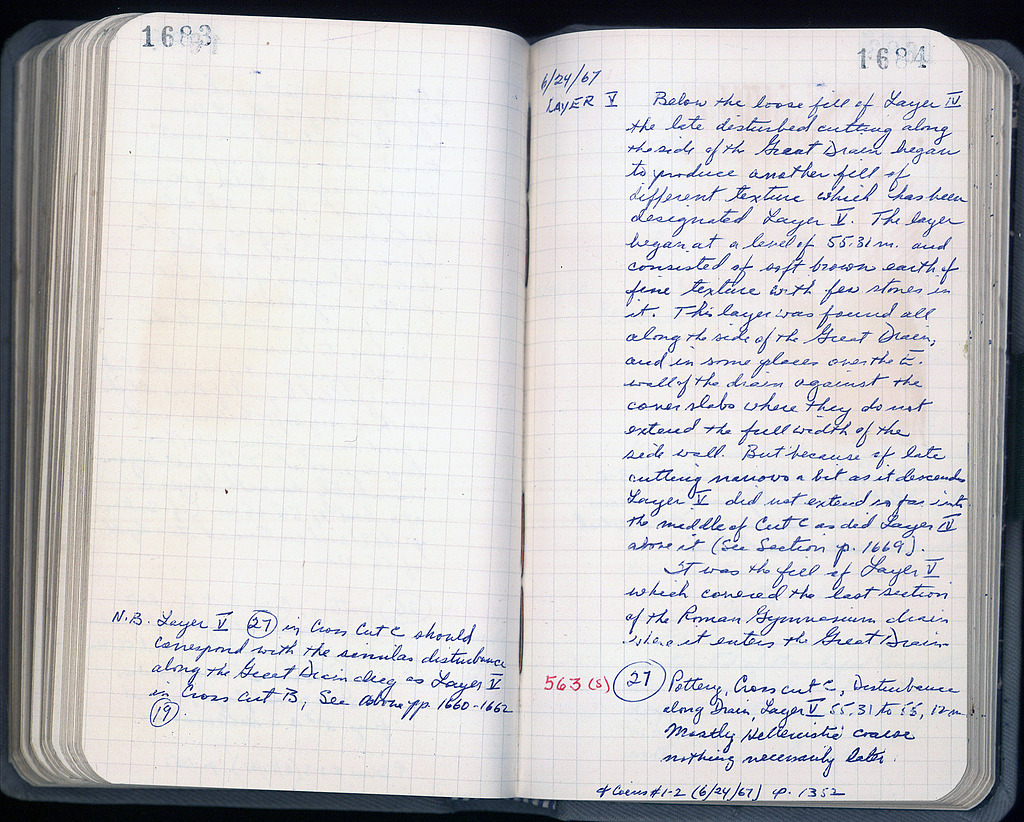 1683
N.B. Layer V (27) in Cross Cut C should
correspond with the similar disturbance
along the Great Drain dug as Layer V
in Cross Cut B, See above pp. 1660-1662
(19).
1684
6/24/67
LAYER V Below the loose fill of Layer IV
the late disturbed cutting along
the side of the Great Drain began
to produce another fill of
different texture which has been
designated Layer V. The layer
began at a level of 55.31 m. and
consisted of soft brown earth of
fine texture with few stones in
it. This layer was found all
along the side of the Great Drain,
and in some places over the E.
wall of the drain against the
cover slabs where they do not
extend the full width of the
side wall. But because of late
cutting narrows a bit as it descends
Layer V did not extend so far into
the middle of Cut C as did Layer IV
above it (See Section p. 1669).
It was the fill of Layer V
which covered the last section
of the Roman Gymnasium drain
where it enters the Great Drain
563 (S) (27) Pottery, Cross cut C, Disturbance
along Drain, Layer V 55.31 to 55.12 m.
Mostly Hellenistic coarse
nothing necessarily later.
& Coins #1-2 (6/24/67) p. 1352